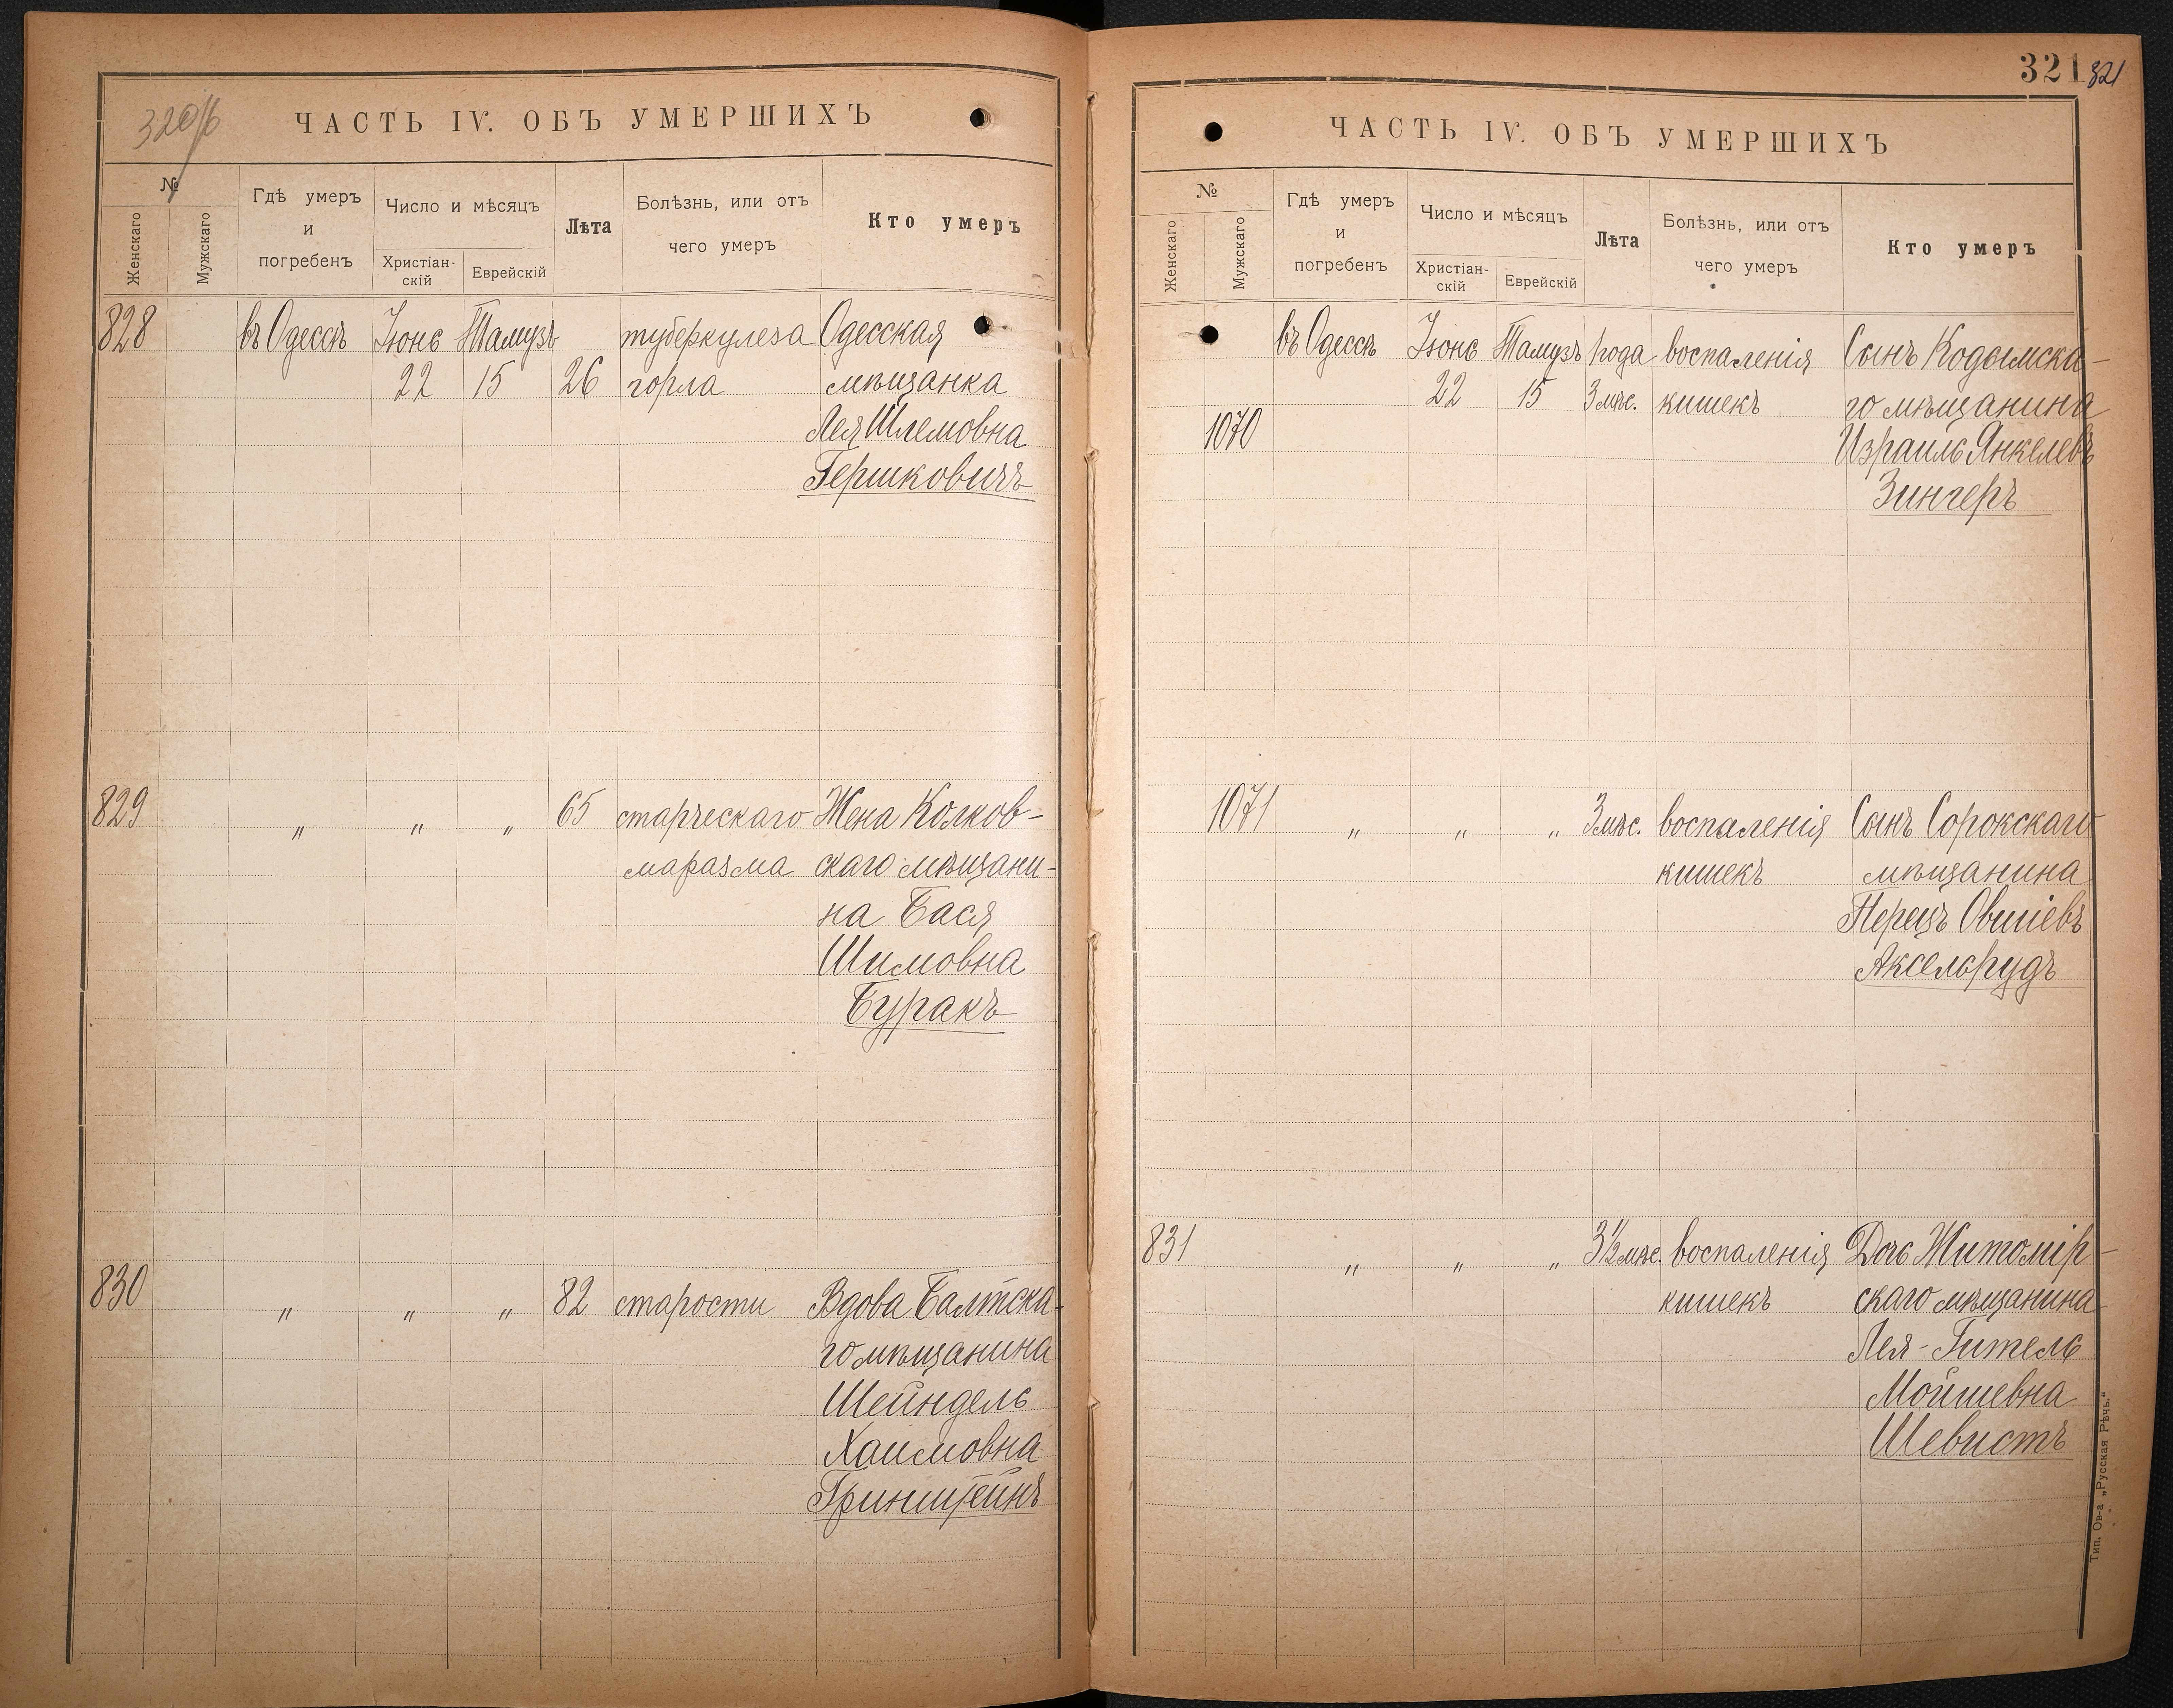 320/б
ЧАСТЬ IV. ОБЪ УМЕРШИХЪ
№
Женскаго
Мужскаго
Гдѣ умеръ
и
погребенъ
Число и мѣсяцъ
Христіан-
скій
Еврейскій
Лѣта
Болѣзнь, или отъ
чего умеръ
Кто умеръ
828 въ Одессѣ Іюнь Тамузъ туберкулеза Одесская
22 15 26 горла мѣщанка
Лея Шлемовна
Гершковичъ
829 " " " 65 старческаго Жена Колков-
маразма скаго мѣщани-
на Бася
Шимовна
Буракъ
830 " " " 82 старости Вдова Балтска-
го мѣщанина
Шейндель
Хаимовна
Гринштейнъ
321 321
ЧАСТЬ IV. ОБЪ УМЕРШИХЪ
№
Женскаго
Мужскаго
Гдѣ умеръ
и
погребенъ
Число и мѣсяцъ
Христіан-
скій
Еврейскій
Лѣта
Болѣзнь, или отъ
чего умеръ
Кто умеръ
въ Одессѣ Іюнь Тамузъ 1 года воспаленія Сынъ Кодымска-
22 15 3 мѣс. кишекъ го мѣщанина
1070 Израиль Янкелевъ
Зингеръ
1071 " " " 3 мѣс. воспаленія Сынъ Сорокскаго
кишекъ мѣщанина
Перецъ Овшіевъ
Аксельрудъ
831 " " " 3½ мѣс. воспаленія Дочь Житомір-
кишекъ скаго мѣщанина
Лея-Гитель
Мойшевна
Шевистъ
Тип. Ов-а „Русская Рѣчь."